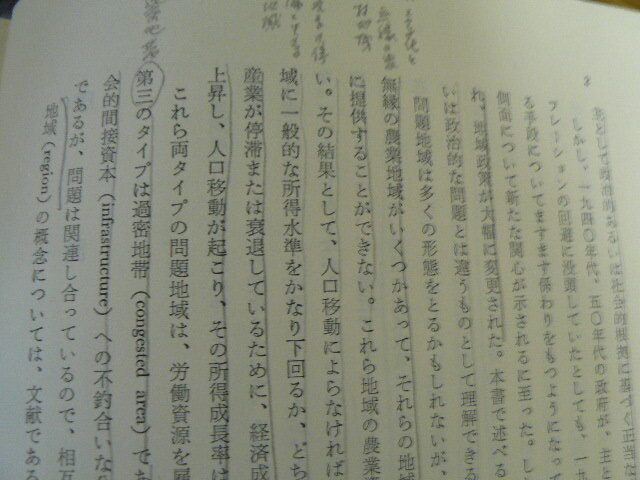 2
主として政治的あるいは社会的根拠に基づく正当な
しかし、一九四〇年代、五〇年代の政府が、主と
フレーションの回避に没頭していたとしても、一九
る手段についてますます係わりをもつようになって
側面について新たな関心が示されるに至った。し
れ、地域政策が大幅に変更された。本書で述べる
いは政治的な問題とは違うものとして理解できる
問題地域は多くの形態をとるかもしれないが、
無縁の農業地域がいくつかあって、それらの地域
に提供することができない。これら地域の農業
い。その結果として、人口移動によらなければ
域に一般的な所得水準をかなり下回るか、どち
産業が停滞または衰退しているために、経済成
上昇し、人口移動が起こり、その所得成長率は
これら両タイプの問題地域は、労働資源を雇
第三のタイプは過密地帯（congested area）であ
会的間接資本（infrastructure）への不釣合いな
であるが、問題は関連し合っているので、相互
地域（region）の概念については、文献である